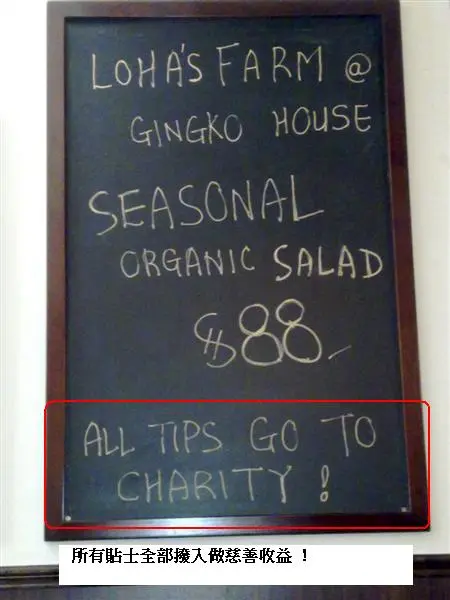 LOHA'S FARM @
GINGKO HOUSE
SEASONAL
ORGANIC SALAD
$88-
ALL TIPS GO TO
CHARITY !
所有貼士全部撥入做慈善收益 !